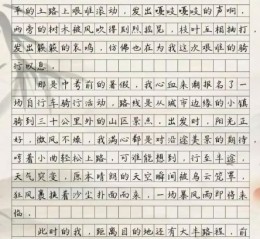 平的土路上艰难滚动，发出嘎吱嘎吱的声响，
两旁的树木被风吹得剧烈摇晃，枝叶互相抽打，
发出簌簌的哀鸣，仿佛也在为我这次艰难的骑
行叹息。
那是中考前的暑假，我心血来潮报名了一
场自行车骑行活动，路线是从城市边缘的小镇
骑到三十公里外的山区景点，出发时，阳光正
好，微风不燥，我满心都是对沿途美景的期待，
哼着小曲轻松上路，可谁能想到，行至半途，
天气突变，原本晴朗的天空瞬间被乌云笼罩，
狂风裹挟着沙尘扑面而来，一场暴风雨即将来
临。
此时的我，距离目的地还有大半路程，前